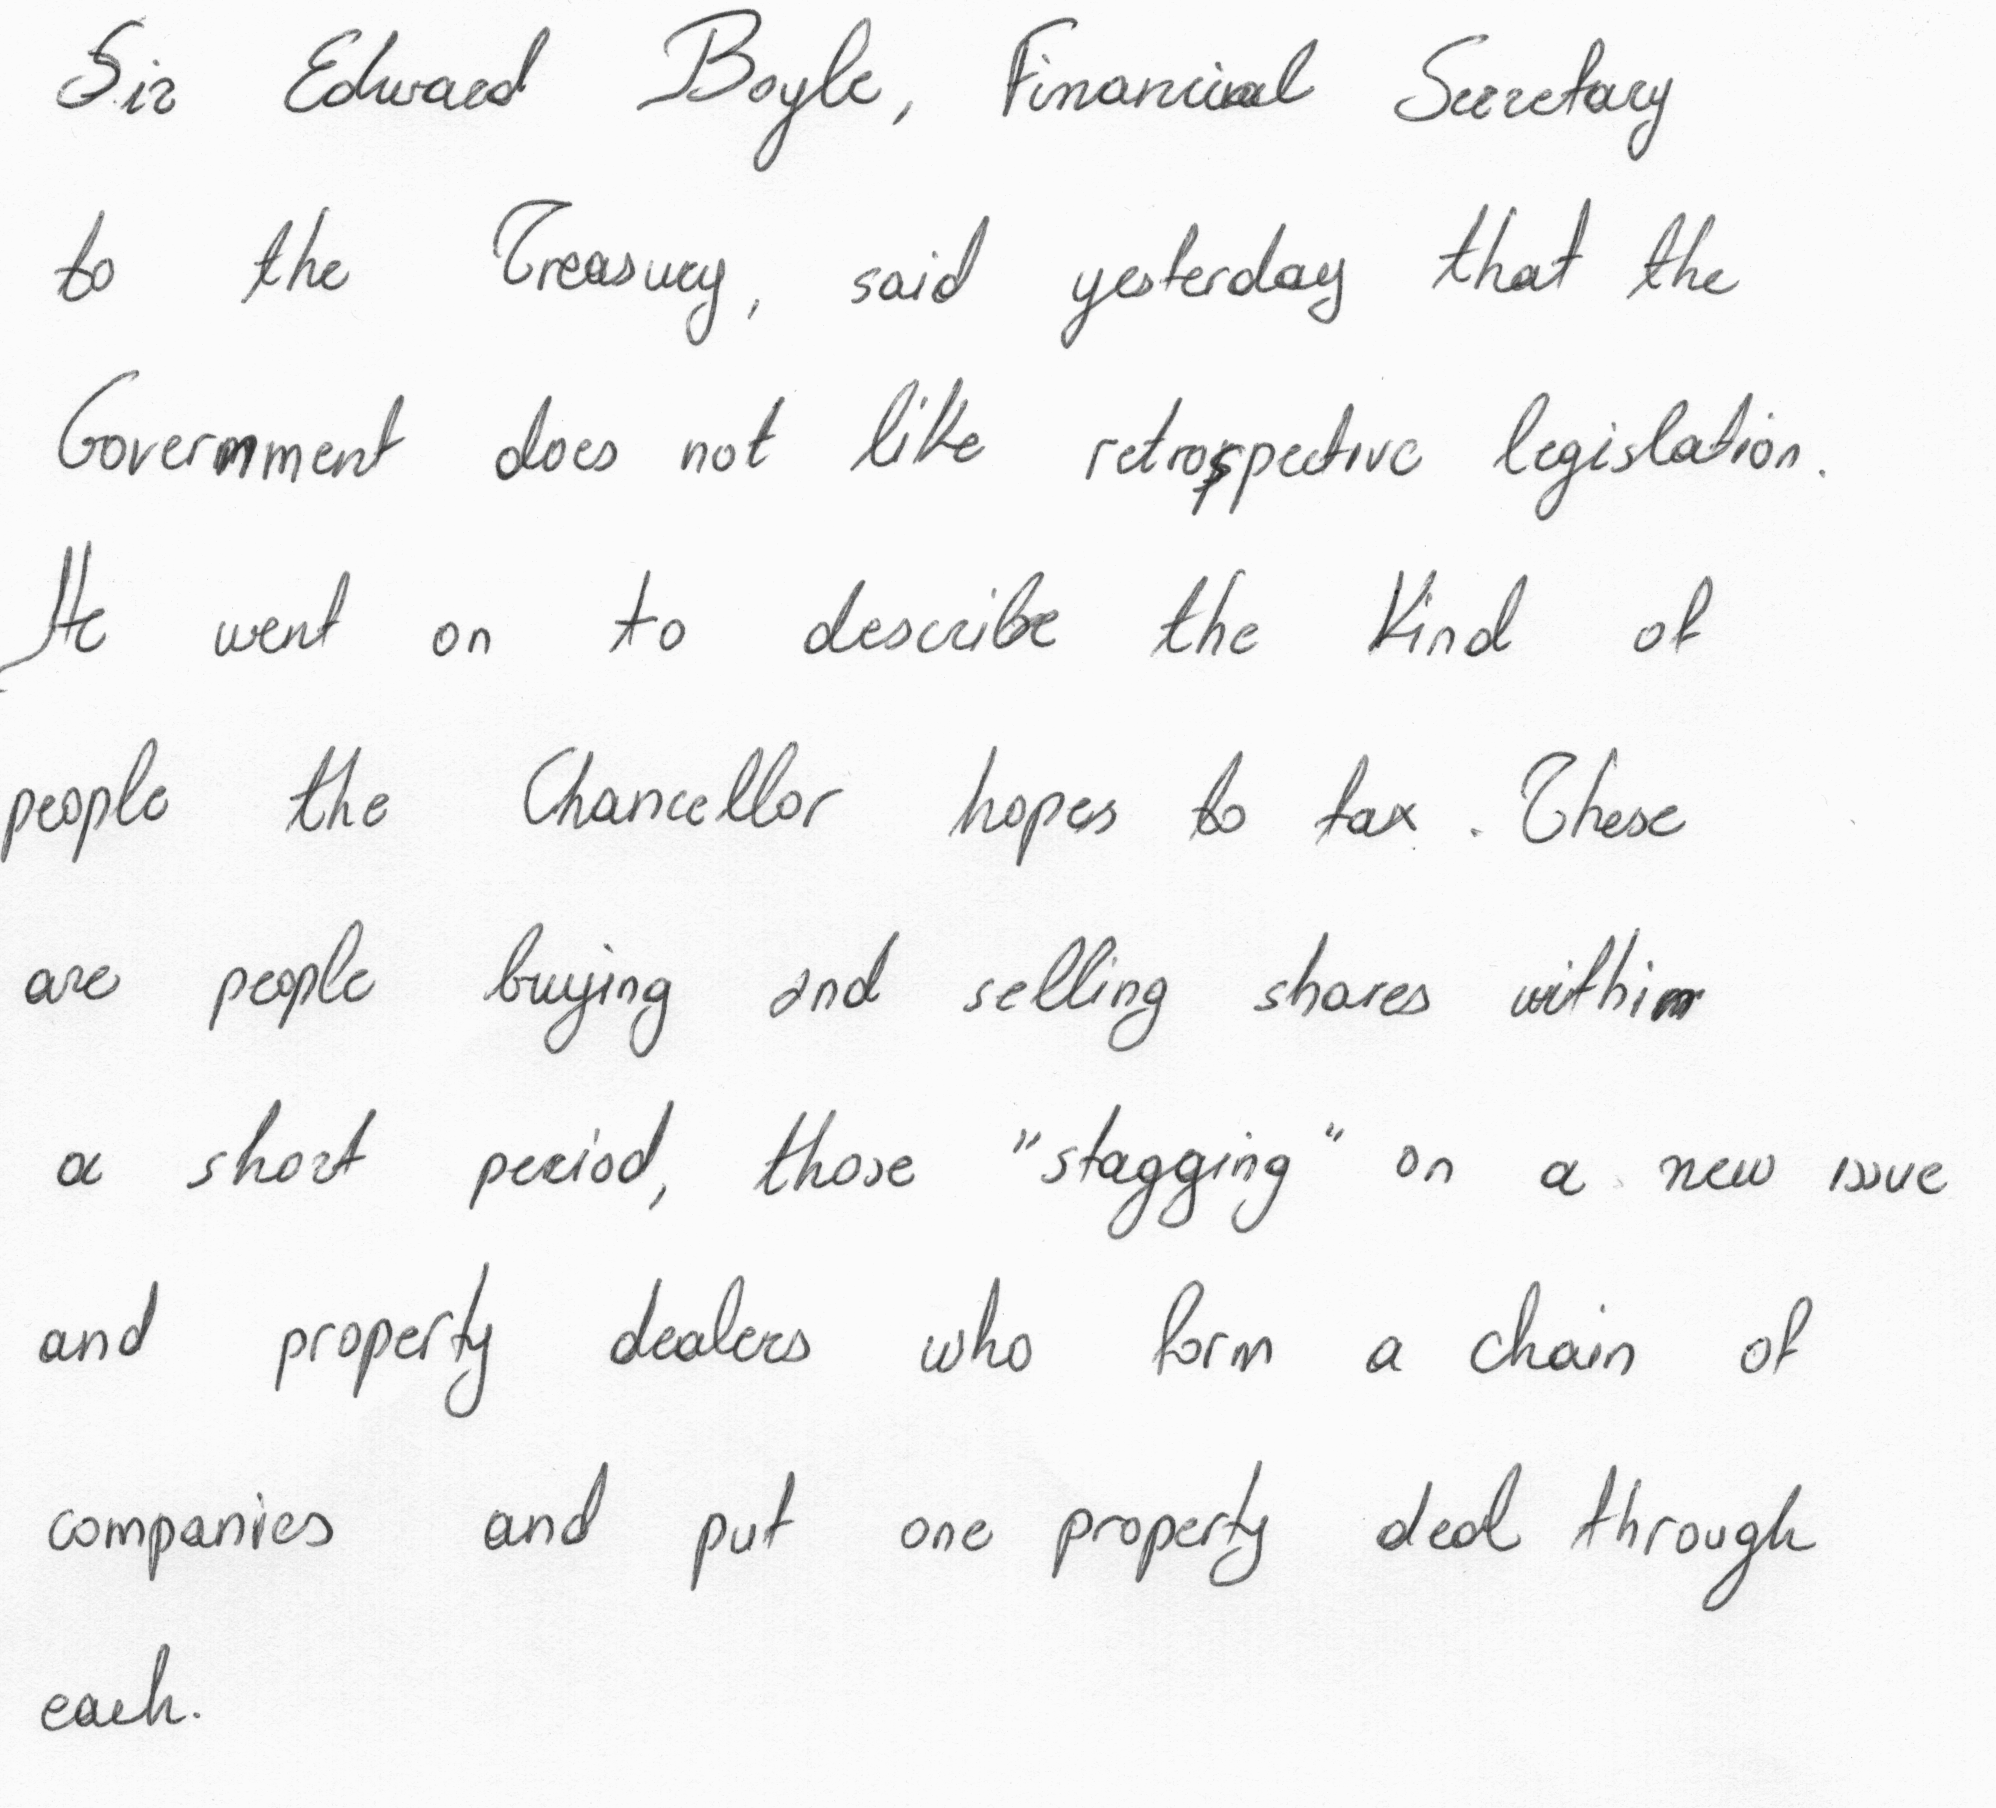 Sir Edward Boyle, Financial Secretary
to the Treasury, said yesterday that the
Government does not like retrospective legislation.
He went on to describe the kind of
people the Chancellor hopes to tax. These
are people buying and selling shares within
a short period, those "stagging" on a new issue
and property dealers who form a chain of
companies and put one property deal through
each.